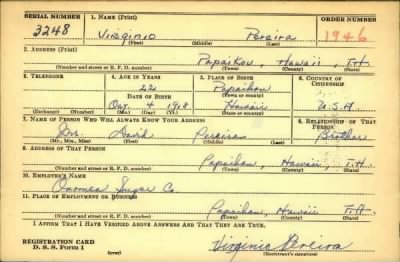 SERIAL NUMBER 1. NAME (Print) ORDER NUMBER
3248 Virginio Pereira 1946
(First) (Middle) (Last)
2. ADDRESS (Print)
Papaikou, Hawaii, T.H.
(Number and street or R. F. D. number) (Town) (County) (State)
3. TELEPHONE 4. AGE IN YEARS 5. PLACE OF BIRTH 6. COUNTRY OF CITIZENSHIP
22 Papaikou
DATE OF BIRTH (Town or county)
Oct. 4 1918 Hawaii U.S.A
(Exchange) (Number) (Mo.) (Day) (Yr.) (State or country)
7. NAME OF PERSON WHO WILL ALWAYS KNOW YOUR ADDRESS 8. RELATIONSHIP OF THAT PERSON
David Pereira Brother
(Mr., Mrs., Miss) (First) (Middle) (Last)
9. ADDRESS OF THAT PERSON
Papaikou, Hawaii, T.H.
(Number and street or R. F. D. number) (Town) (County) (State)
10. EMPLOYER'S NAME
Onomea Sugar Co.
11. PLACE OF EMPLOYMENT OR BUSINESS
Papaikou, Hawaii T.H.
(Number and street or R. F. D. number) (Town) (County) (State)
I AFFIRM THAT I HAVE VERIFIED ABOVE ANSWERS AND THAT THEY ARE TRUE.
REGISTRATION CARD
D. S. S. Form 1 (over) Virginio Pereira
(Registrant's signature)